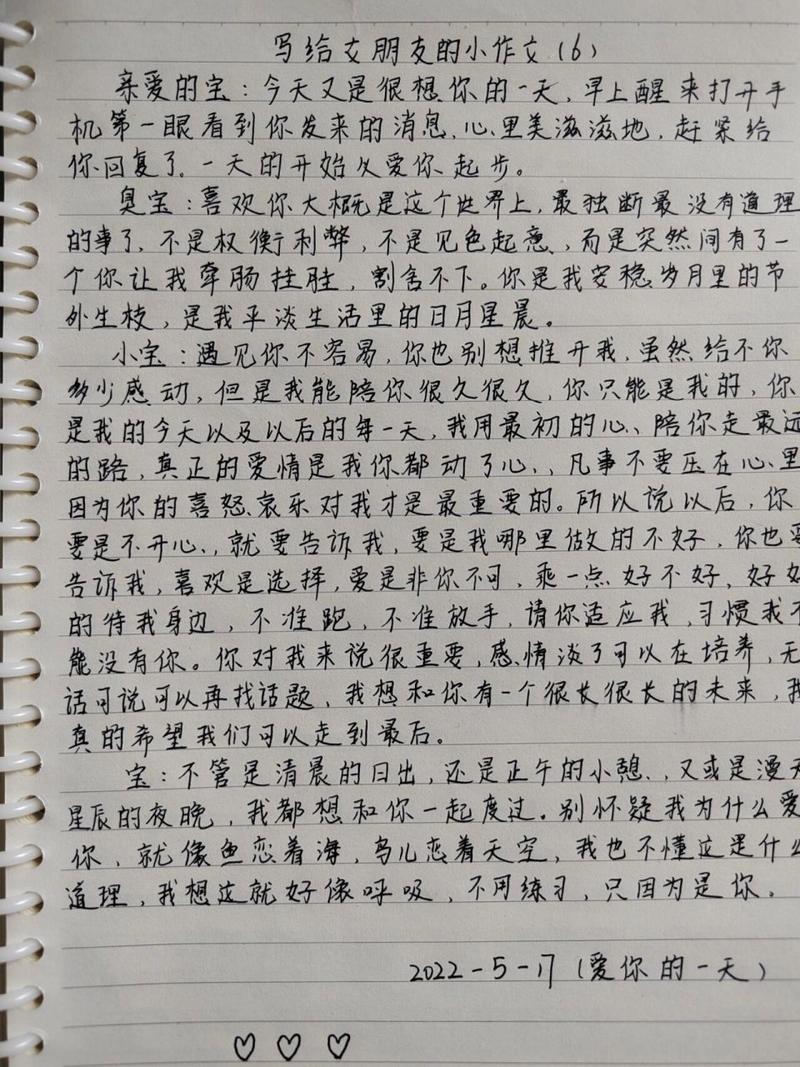 写给女朋友的小作文(6)
亲爱的宝：今天又是很想你的一天，早上醒来打开手
机第一眼看到你发来的消息，心里美滋滋地，赶紧给
你回复了，一天的开始从爱你起步。
臭宝：喜欢你大概是这个世界上，最独断最没有道理
的事了，不是权衡利弊，不是见色起意，而是突然间有了一
个你让我牵肠挂肚，割舍不下。你是我安稳岁月里的节
外生枝，是我平淡生活里的日月星晨。
小宝：遇见你不容易，你也别想推开我，虽然给不你
多少感动，但是我能陪你很久很久，你只能是我的，你
是我的今天以及以后的每一天，我用最初的心、陪你走最远
的路，真正的爱情是我你都动了心，凡事不要压在心里
因为你的喜怒哀乐对我才是最重要的。所以说以后，你
要是不开心，就要告诉我，要是我哪里做的不好，你也要
告诉我，喜欢是选择，爱是非你不可，乖一点好不好，好好
的待我身边，不准跑，不准放手，请你适应我，习惯我不
能没有你。你对我来说很重要，感情淡了可以在培养，无
话可说可以再找话题，我想和你有一个很长很长的未来，我
真的希望我们可以走到最后。
宝：不管是清晨的日出，还是正午的小憩，又或是漫天
星辰的夜晚，我都想和你一起度过。别怀疑我为什么爱
你，就像鱼恋着海，鸟儿恋着天空，我也不懂这是什么
道理，我想这就好像呼吸，不用练习，只因为是你。
2022-5-17(爱你的一天)
♡ ♡ ♡